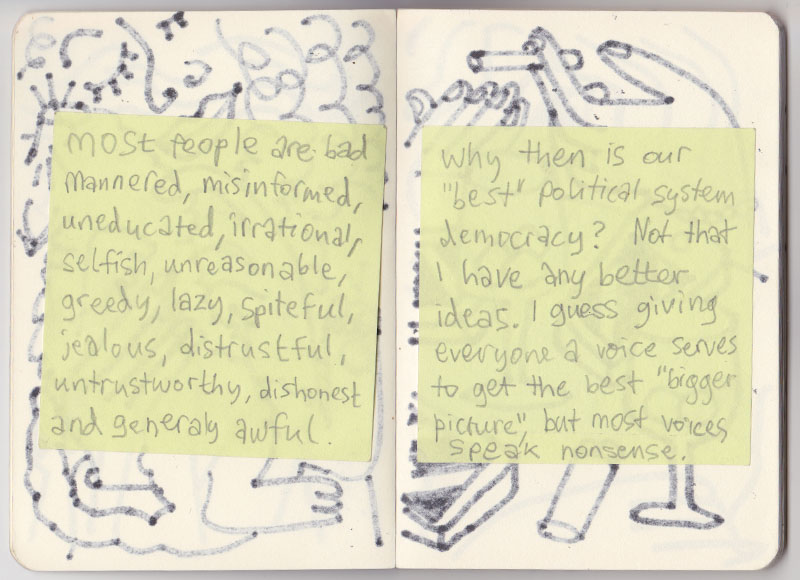 most people are bad
mannered, misinformed,
uneducated, irrational,
selfish, unreasonable,
greedy, lazy, spiteful,
jealous, distrustful,
untrustworthy, dishonest
and generaly awful.
why then is our
"best" political system
democracy? Not that
I have any better
ideas. I guess giving
everyone a voice serves
to get the best "bigger
picture", but most voices
speak nonsense.